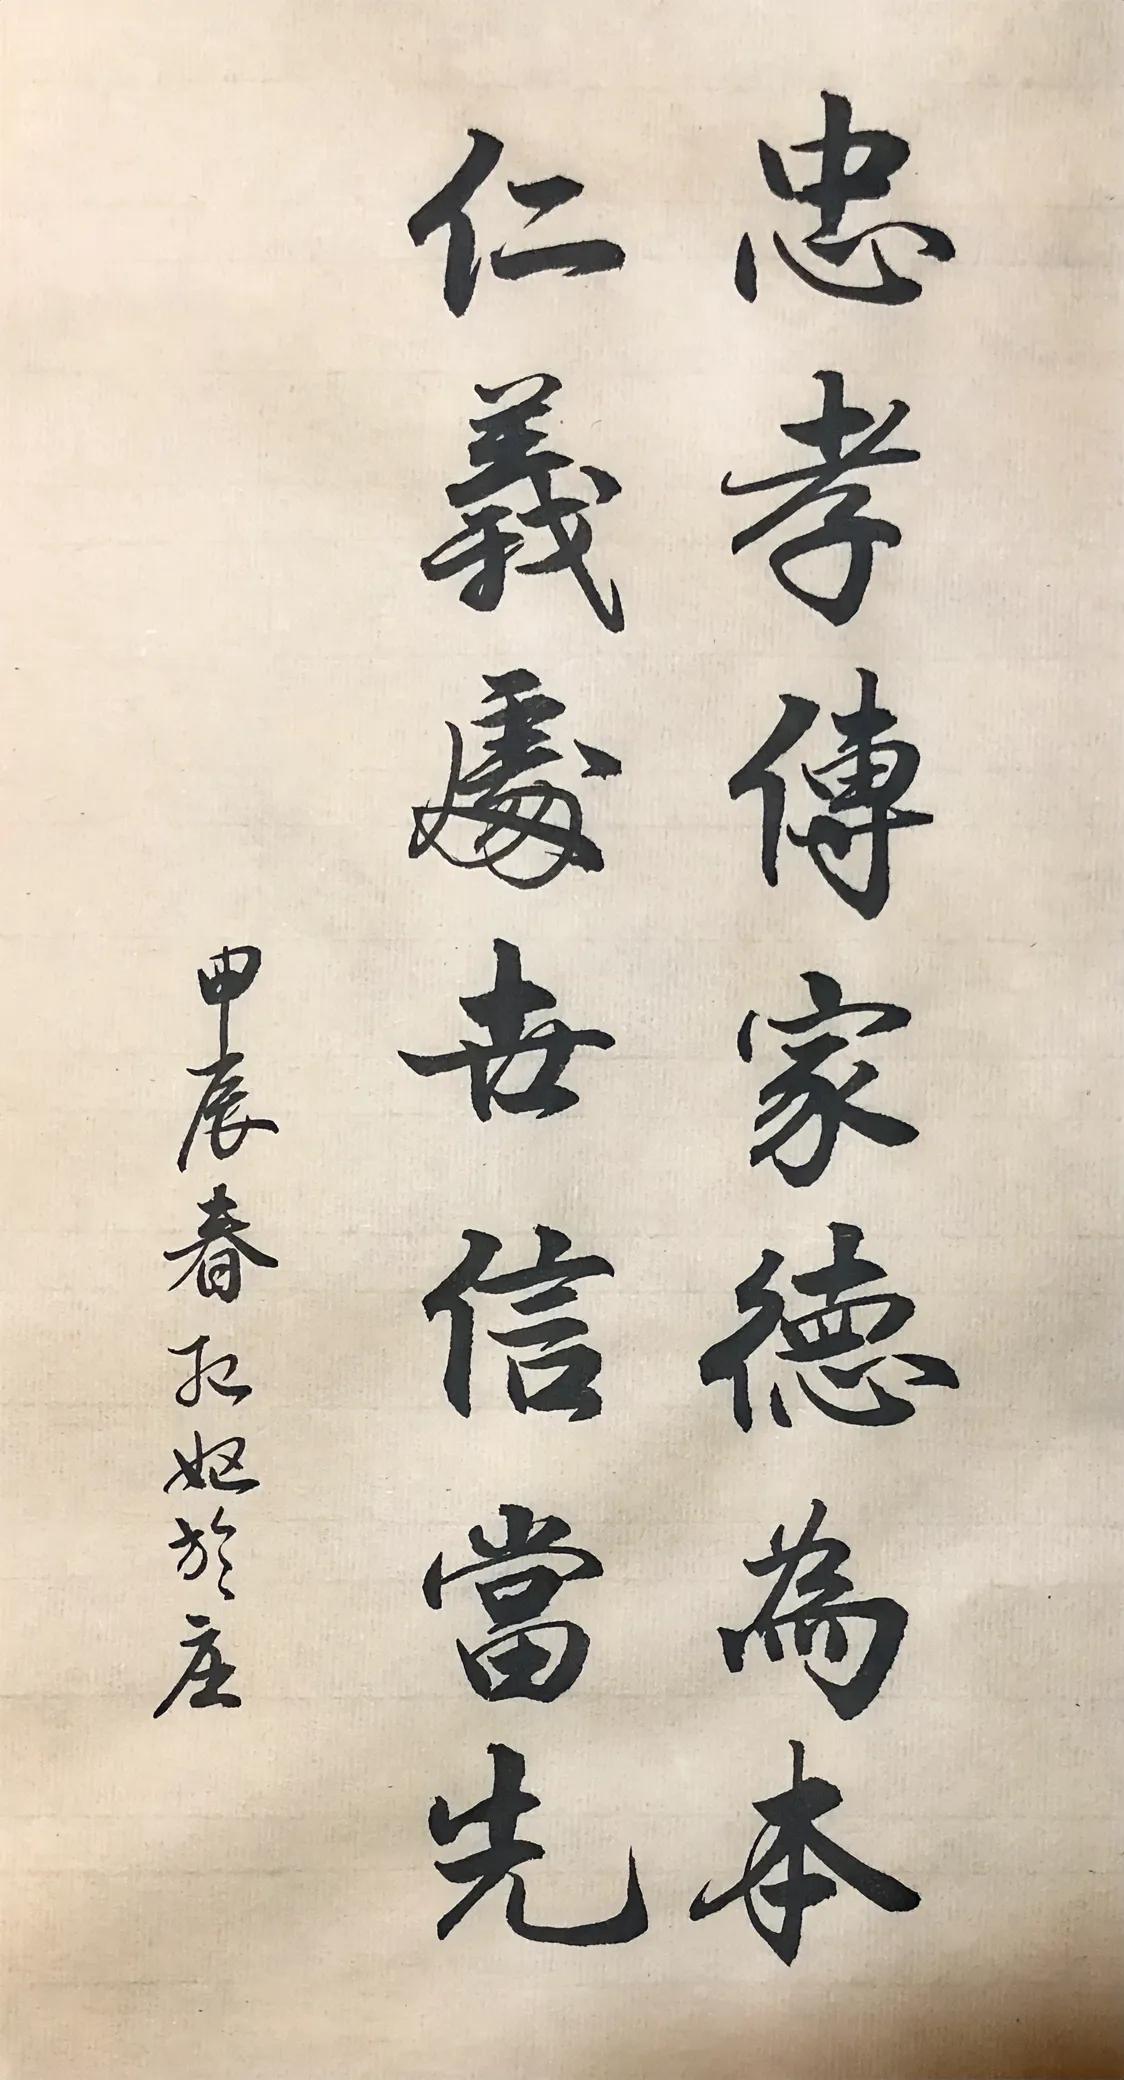 忠孝傳家德為本
仁義處世信當先
甲辰春 於庄